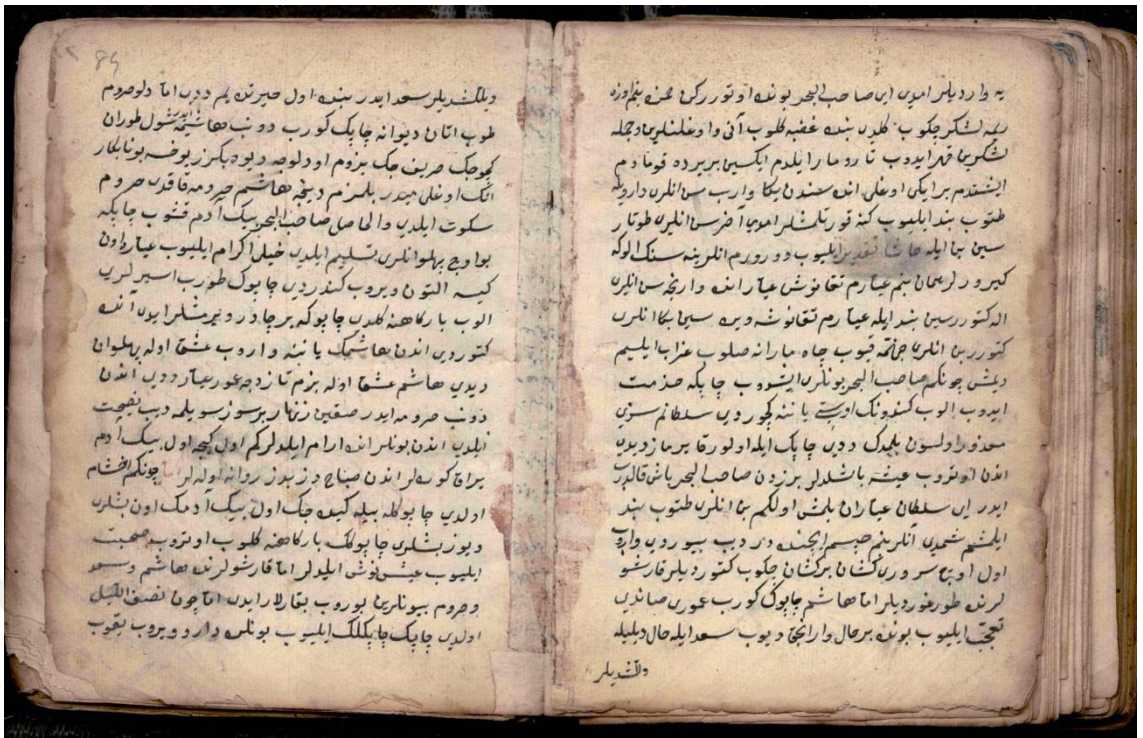 یه واردیلر امدی ای صاحب البحر بونده اوتوررکن حمزه بنم اوزه
ریمه لشکر چکوب کلدی بنده غضبه کلوب آنی و اوغللرین و جمله
لشکرین قهر ایدوب تار و مار ایلدم ایکسین بر یرده قومادم
ایشتدم بر ایکی اوغلی انده سندن یکا واروب سن انلری دارویله
طتوب بند ایلیوب کنه قورتلمشلر امدی آخر سن انلری طوتار
سین بن ایله حاشا ایلیوب دوررم انلرینه سنک الوکه
کیرورلر همان بنم عیارم نقانوش عیار انده وارنجه سن انلری
اله کتوررسین بند ایله عیارم نقانوشه ویره سین بکا انلری
کتورسن انلری خاتمه قیوب چاه مارانه صلوب عذاب ایلیم
دیمش چونکم صاحب البحر بونلری ایشدوب چاپکه خدمت
ایدوب الوب کندونک اوست یاننه کچوردی سلطانم سزی
معذور اولسون بلمدک ددی چاپک ایله اولور قایرماز دیدی
اندن اوتروب عیشه باشلدلر برزدن صاحب البحر باش قالدرب
ایدر ای سلطان عیاران بلمش اولکم بن انلری طتوب بند
ایلمشم شمدی آنلر بنم حبسم ایچنده در دیب بیوردی واروب
اول اوچ سروری کشان برکشان چکوب کتوردیلر قارشو
لرنده طورغوردیلر اما هاشم چاپوک کورب عوری صاندی
تعجب ایلیوب بونده بر حال وار انجق دیوب سعد ایله حال دیلیله
دلاشدیلر
84
دیللشدیلر سعد ایدر بنده اول حیرتده یم ددی اما دلو صروم
طوب اتان دیوانه چاپک کورب دونب هاشمه ایدر شول طوران
کچوجک حریف جک بزوم او دلوجه دیوه بکزر یوخسه بونابکار
انک اوغلی میدر بلمزم دینجه هاشم صرومه قاقدی صروم
سکوت ایلدی والحاصل صاحب البحر بیک آدم قشوب چاپکه
بو اوچ پهلوانلری تسلیم ایلدی خیل اکرام ایلیوب عیاره اون
کیسه التون ویروب کندردی چاپوک طورب اسیرلری
الوب بارکاهنه کلدی چاپوکه بر چادر ویرمشلر ایدی آنده
کتوردی اندن هاشمک یاننه واروب عشق اوله پهلوان
دیدی هاشم عشق اوله بزم تازه جه عور عیار ددی اندن
دونب صرومه ایدر صقین زنهار بر سوز سویلمه دیب نصیحت
ایلدی اندن بونلر انده ارام ایلدلر کم اول کیجه اول بیک آدم
یراق کوره لر اندن صباح دزبدز روانه اوله لر چونکم اخشام
اولدی چاپوکله بیله کیده جک اول بیک آدمک اون بشلری
ویوز بشلری چاپوکک بارکاهنه کلوب اوتروب صحبت
ایلیوب عیش نوش ایلدلر اما قارشولرنده هاشم و سعد
و صروم بیونلرین بوروب بقارلار ایدی اما چون نصف اللیل
اولدی چاپک چاپکلک ایلیوب بونلره دارو ویروب یقوب